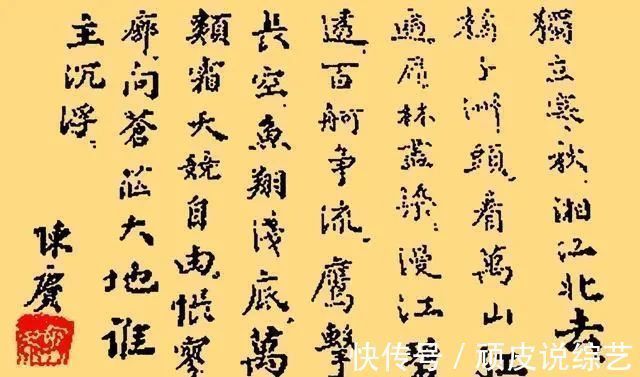 獨立寒秋湘江北去
橘子洲頭看萬山
遍層林盡染漫江
透百舸爭流鷹擊
長空魚翔淺底萬
類霜天競自由悵寥
廓問蒼茫大地誰
主沉浮
陳
快传号 / 顽皮说综艺